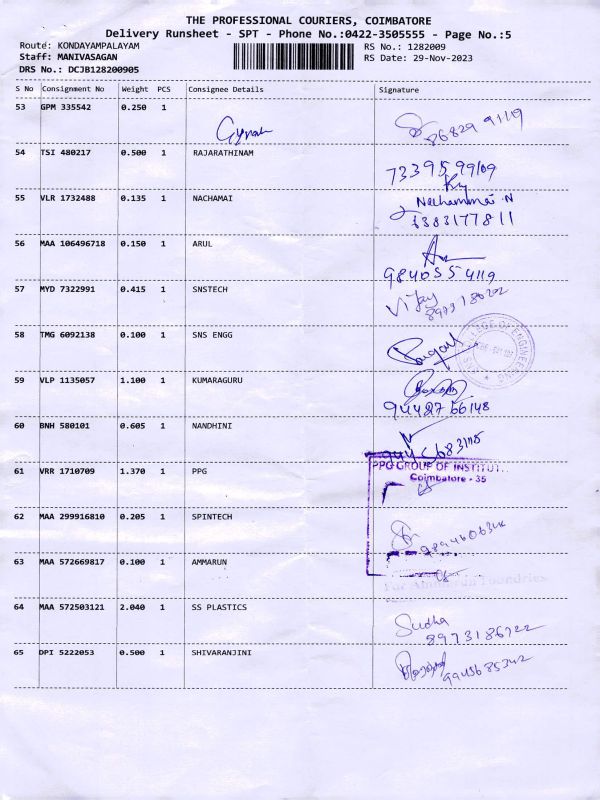 THE PROFESSIONAL COURIERS, COIMBATORE
Delivery Runsheet - SPT - Phone No.:0422-3505555 - Page No.:5
Route: KONDAYAMPALAYAM RS No.: 1282009
Staff: MANIVASAGAN RS Date: 29-Nov-2023
DRS No.: DCJB128200905
S No Consignment No Weight PCS Consignee Details Signature
53 GPM 335542 0.250 1
54 TSI 480217 0.500 1 RAJARATHINAM
7339599109
55 VLR 1732488 0.135 1 NACHAMAI Nachammai.N
6383177811
56 MAA 106496718 0.150 1 ARUL
9840554119
57 MYD 7322991 0.415 1 SNSTECH Vijay
58 TMG 6092138 0.100 1 SNS ENGG
COLLEGE OF ENGINEERING
59 VLP 1135057 1.100 1 KUMARAGURU
60 BNH 580101 0.605 1 NANDHINI
61 VRR 1710709 1.370 1 PPG PPG GROUP OF INSTITUT
Coimbatore - 35
62 MAA 299916810 0.205 1 SPINTECH
63 MAA 572669817 0.100 1 AMMARUN
Foundries
64 MAA 572503121 2.040 1 SS PLASTICS Sudha
8973186722
65 DPI 5222053 0.500 1 SHIVARANJINI
9945685342